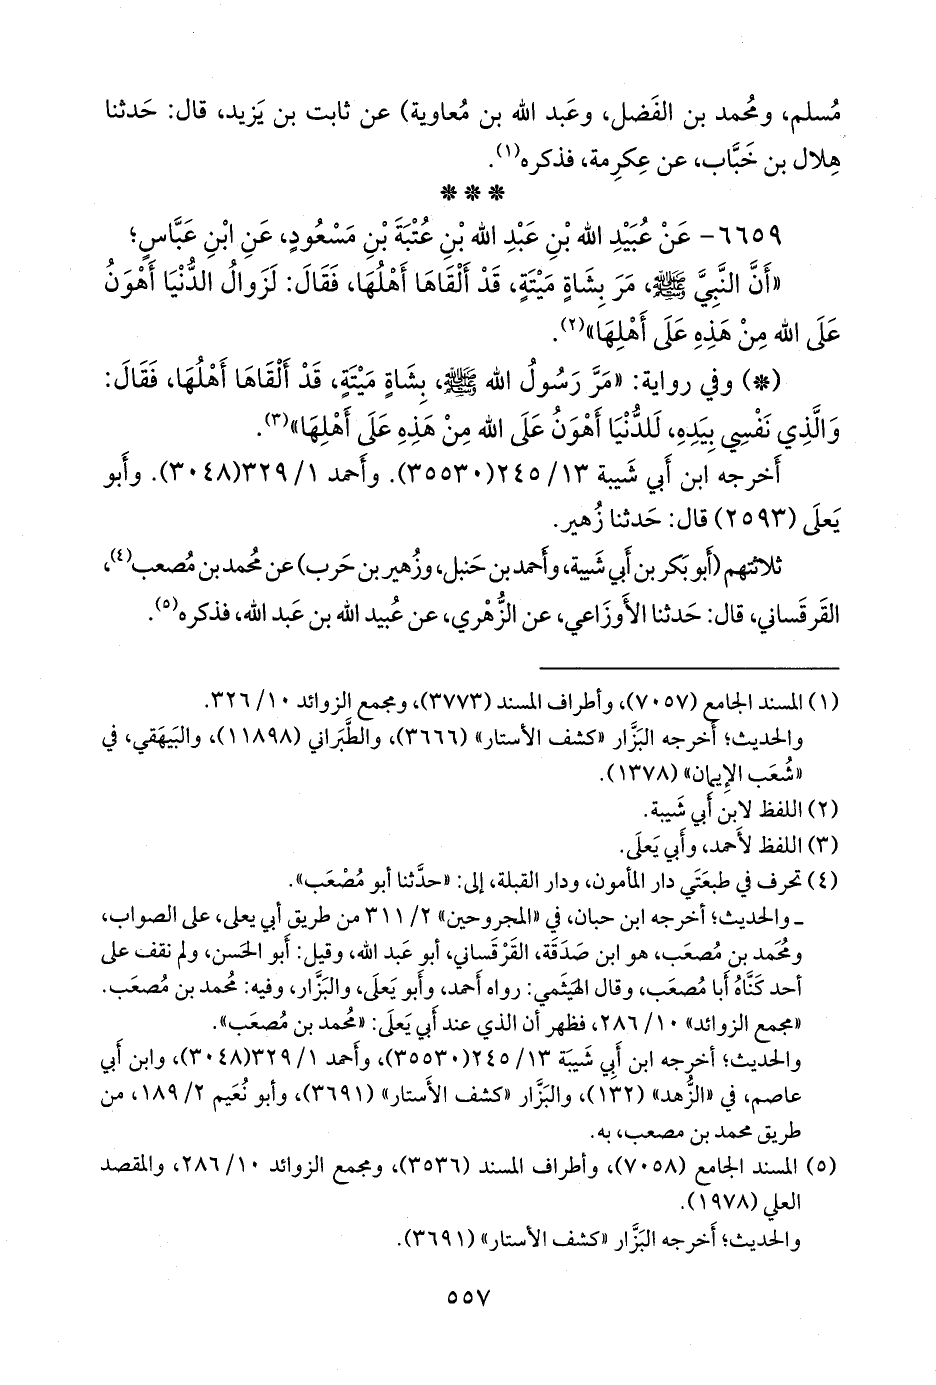 مُسلم، ومُحمد بن الفَضل، وعَبد الله بن مُعاوية) عن ثابت بن يَزيد، قال: حَدثنا
هِلال بن خَبَّاب، عن عِكرِمة، فذكره(١).
* * *
٦٦٥٩- عَنْ عُبَيْدِ الله بْنِ عَبْدِ الله بْنِ عُتْبَةَ بْنِ مَسْعُودٍ، عَنِ ابْنِ عَبَّاسٍ؛
«أَنَّ النَّبِيَّ ﷺ، مَرَ بِشَاةٍ مَيْتَةٍ، قَدْ أَلْقَاهَا أَهْلُهَا، فَقَالَ: لَزَوالُ الدُّنْيَا أَهْوَنُ
عَلَى الله مِنْ هَذِهِ عَلَى أَهْلِهَا»(٢).
(*) وفي رواية: «مَرَّ رَسُولُ الله ﷺ، بِشَاةٍ مَيْتَةٍ، قَدْ أَلْقَاهَا أَهْلُهَا، فَقَالَ:
وَالَّذِي نَفْسِي بِيَدِهِ، لَلدُّنْيَا أَهْوَنُ عَلَى الله مِنْ هَذِهِ عَلَى أَهْلِهَا»(٣).
أَخرجه ابن أَبي شَيبة ١٣/ ٢٤٥(٣٥٥٣٠). وأَحمد ١/ ٣٢٩(٣٠٤٨). وأَبو
يَعلَى (٢٥٩٣) قال: حَدثنا زُهير.
ثلاثتهم (أَبو بَكر بن أَبي شَيبة، وأَحمد بن حَنبل، وزُهير بن حَرب) عن مُحمد بن مُصعب(٤)،
القَرقَساني، قال: حَدثنا الأَوزَاعي، عن الزُّهْري، عن عُبيد الله بن عَبد الله، فذكره(٥).
(١) المسند الجامع (٧٠٥٧)، وأطراف المسند (٣٧٧٣)، ومجمع الزوائد ١٠/ ٣٢٦.
والحديث؛ أَخرجه البَزَّار «كشف الأستار» (٣٦٦٦)، والطَّبَراني (١١٨٩٨)، والبَيهَقي، في
«شُعَب الإِيمان» (١٣٧٨).
(٢) اللفظ لابن أَبي شَيبة.
(٣) اللفظ لأَحمد، وأَبي يَعلَى.
(٤) تحرف في طبعَتَي دار المأمون، ودار القبلة، إلى: «حدَّثنا أبو مُصْعَب».
ـ والحديث؛ أخرجه ابن حبان، في «المجروحين» ٢/ ٣١١ من طريق أبي يعلى، على الصواب،
ومُحَمد بن مُصعَب، هو ابن صَدَقة، القَرْقَساني، أبو عَبد الله، وقيل: أبو الحَسن، ولم نقف على
أحد كَنَّاهُ أبا مُصعَب، وقال الهَيثَمي: رواه أحمد، وأَبو يَعلَى، والبَزَّار، وفيه: مُحمد بن مُصعَب.
«مجمع الزوائد» ١٠/ ٢٨٦، فظهر أن الذي عند أَبي يَعلَى: «مُحمد بن مُصعَب».
والحديث؛ أخرجه ابن أَبي شَيبَة ١٣/ ٢٤٥(٣٥٥٣٠)، وأحمد ١/ ٣٢٩(٣٠٤٨)، وابن أَبي
عاصم، في «الزُّهد» (١٣٢)، والبَزَّار «كشف الأستار» (٣٦٩١)، وأَبو نُعَيم ٢/ ١٨٩، من
طريق محمد بن مصعب، به.
(٥) المسند الجامع (٧٠٥٨)، وأطراف المسند (٣٥٣٦)، ومجمع الزوائد ١٠/ ٢٨٦، والمقصد
العلي (١٩٧٨).
والحديث؛ أخرجه البَزَّار «كشف الأستار» (٣٦٩١).
٥٥٧